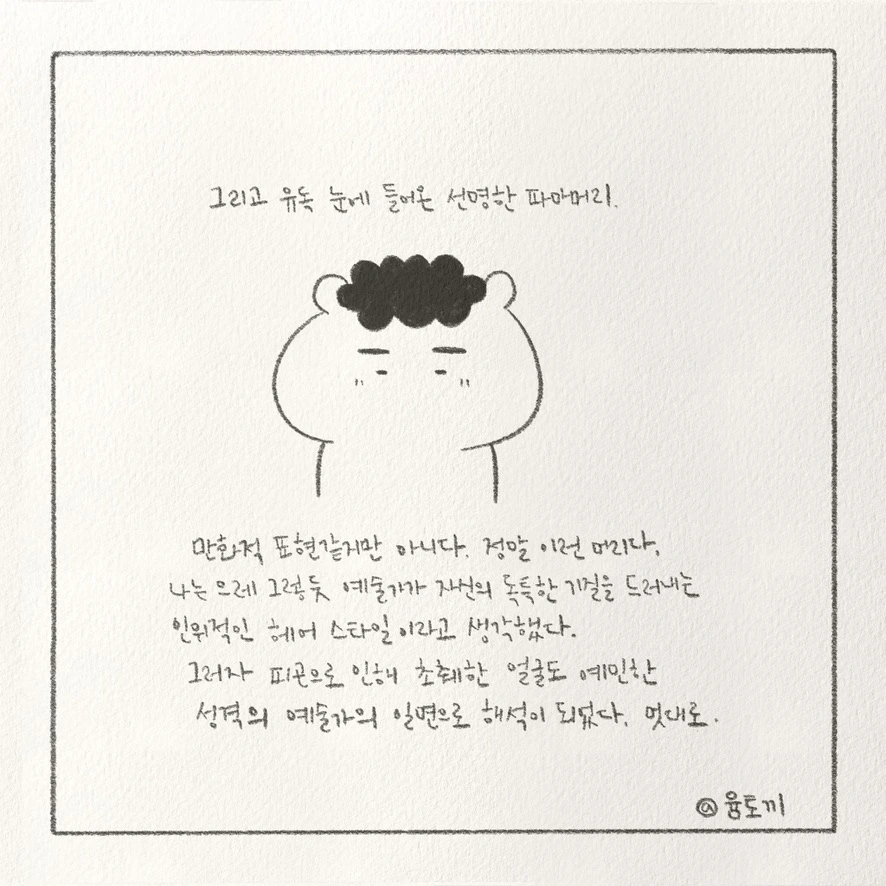 그리고 유독 눈에 들어온 선명한 파마머리.
만화적 표현같지만 아니다. 정말 이런 머리다.
나는 으레 그렇듯 예술가가 자신의 독특한 기질을 드러내는
인위적인 헤어 스타일이라고 생각했다.
그러자 피곤으로 인해 초췌한 얼굴도 예민한
성격의 예술가의 일면으로 해석이 되었다. 멋대로.
@윰토끼